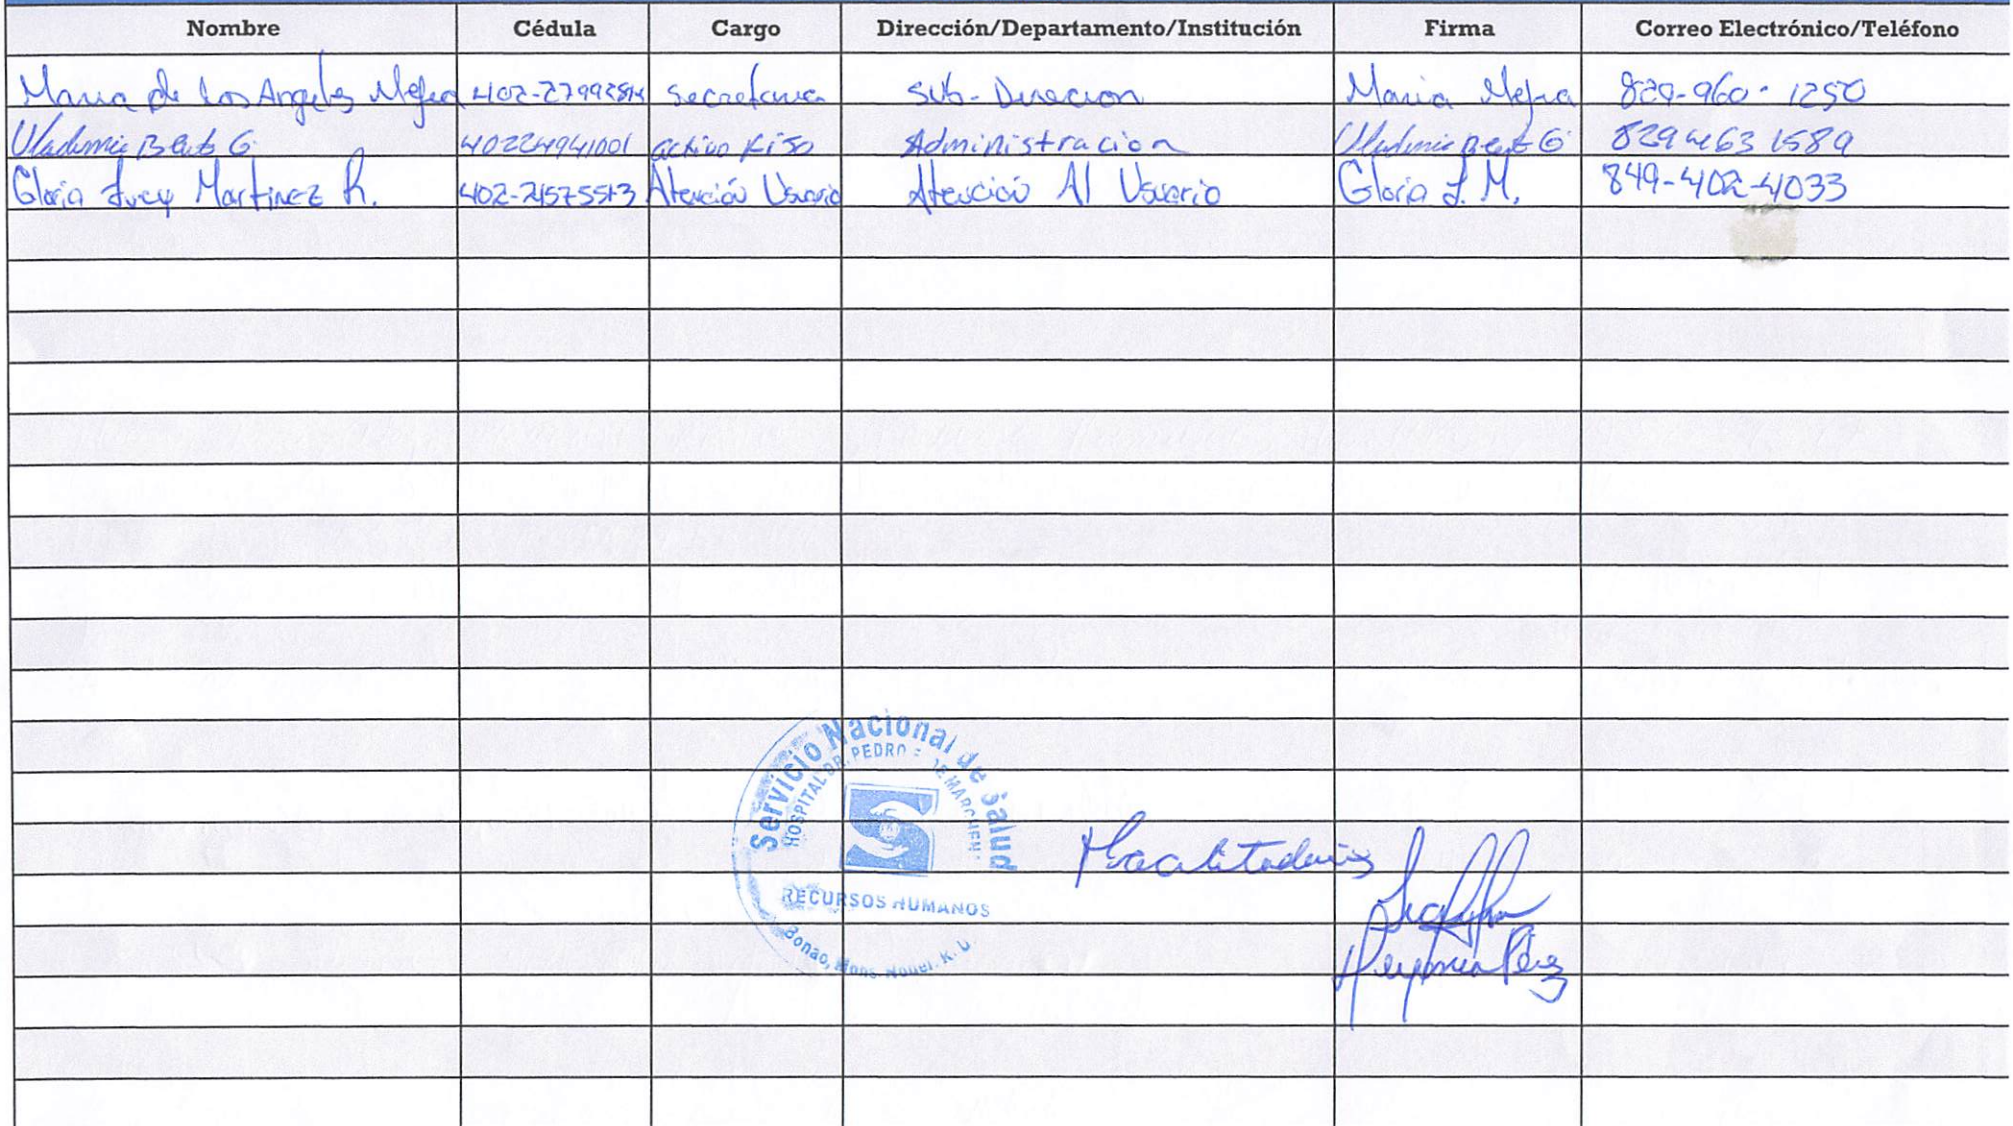 Nombre Cédula Cargo Dirección/Departamento/Institución Firma Correo Electrónico/Teléfono
Maria de los Angeles Mejia secretaria Sub-Direcion Maria Mejia 829-960-1250
40224941001 activo Fijo Administracion 829 463 1589
Gloria Lucy Martinez R. Atención Usuario Atención Al Usuario Gloria L. M. 849-402-4033
Servicio Nacional de Salud
HOSPITAL DR. PEDRO
RECURSOS HUMANOS
Bonao, Mons. Nouel.
Pérez